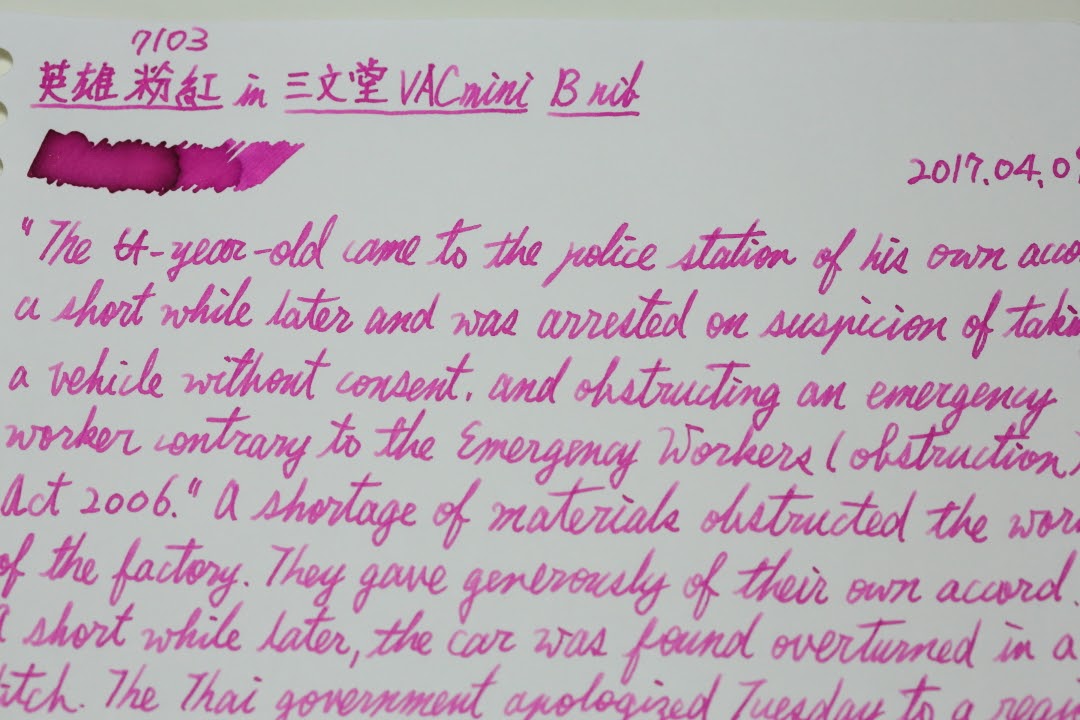 7103
英雄 粉紅 in 三文堂 VACmini B nib
2017.04.0
"The 64-year-old came to the police station of his own acco
a short while later and was arrested on suspicion of takin
a vehicle without consent, and obstructing an emergency
worker contrary to the Emergency Workers (obstruction)
Act 2006." A shortage of materials obstructed the wor
of the factory. They gave generously of their own accord.
A short while later, the car was found overturned in a
ditch. The Thai government apologized Tuesday to a